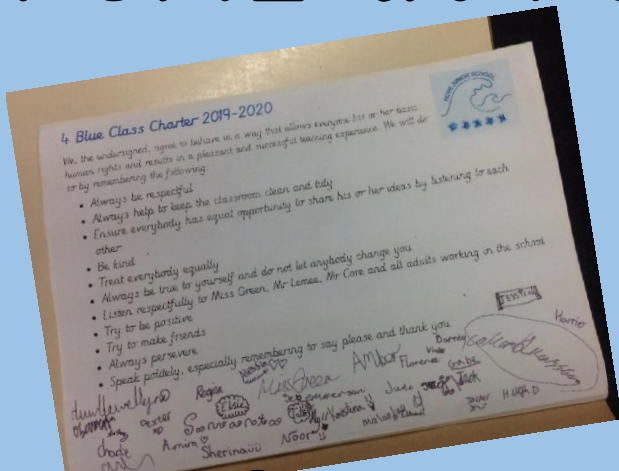 4 Blue Class Charter 2019-2020
HOVE JUNIOR SCHOOL
We, the undersigned, agree to behave in a way that allows everyone his or her basic
human rights and results in a pleasant and successful learning experience. We will do
so by remembering the following:
• Always be respectful
• Always help to keep the classroom clean and tidy
• Ensure everybody has equal opportunity to share his or her ideas by listening to each
other
• Be kind
• Treat everybody equally
• Always be true to yourself and do not let anybody change you
• Listen respectfully to Miss Green, Mr Lemee, Mr Core and all adults working in the school
• Try to be positive
• Try to make friends
• Always persevere
• Speak politely, especially remembering to say please and thank you
Harrie
Barney
Amber
Florence
Miss Green
Regina
Elsie
Jack
Jude
Hugh.D
Dexter
Charlie
Amira
Sherina
Noor